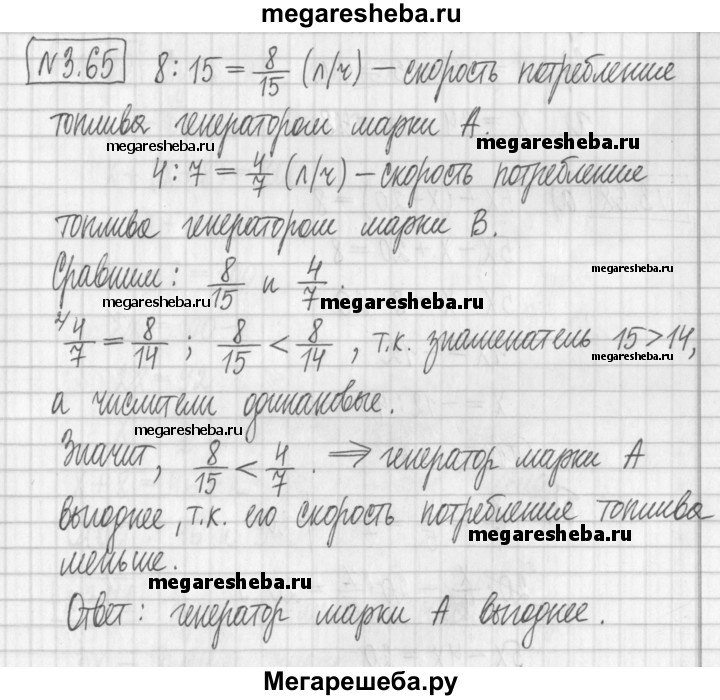 megaresheba.ru
№3.65 8 : 15 = 8/15 (л/ч) – скорость потребление
топлива генератором марки А.
megaresheba.ru megaresheba.ru
4 : 7 = 4/7 (л/ч) – скорость потребление
топлива генератором марки В.
Сравним: 8/15 и 4/7.
megaresheba.ru
megaresheba.ru megaresheba.ru
2/ 4/7 = 8/14 ; 8/15 < 8/14 , т.к. знаменатель 15 > 14,
megaresheba.ru
а числители одинаковые.
megaresheba.ru
Значит, 8/15 < 4/7 . ⟹ генератор марки А
выгоднее, т.к. его скорость потребления топлива
megaresheba.ru
меньше.
megaresheba.ru
Ответ: генератор марки А выгоднее.
Мегарешеба.ру